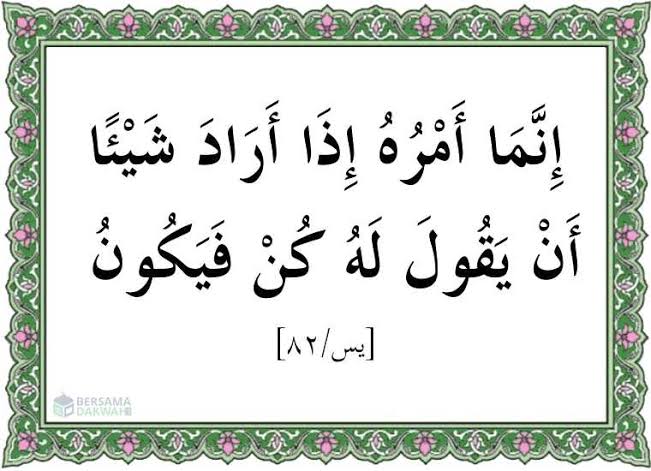 إِنَّمَا أَمْرُهُ إِذَا أَرَادَ شَيْئًا
أَنْ يَقُولَ لَهُ كُنْ فَيَكُونُ
[يس/٨٢]
BERSAMA
DAKWAH